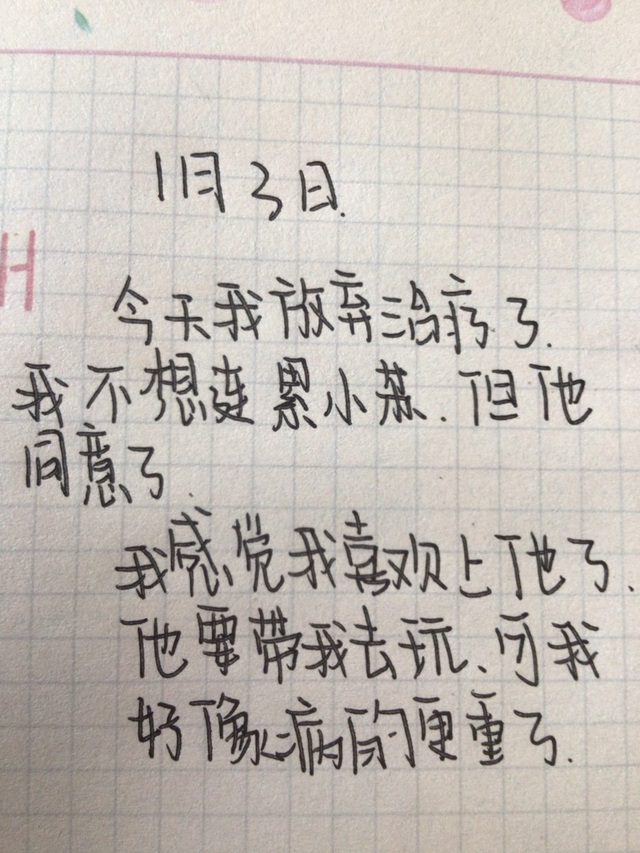 1月3日.
H
今天我放弃治疗了.
我不想连累小苏.但他
同意了.
我感觉我喜欢上他了.
他要带我去玩、可我
好像病的更重了.